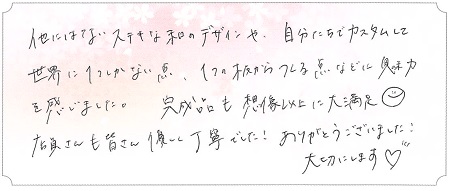 他にはないステキな和のデザインや、自分たちでカスタムして
世界に1つしかない点、1つの板からつくる点などに魅力
を感じました。 完成品も想像以上に大満足☺
店員さんも皆さん優しく丁寧でした！ありがとうございました！
大切にします♡